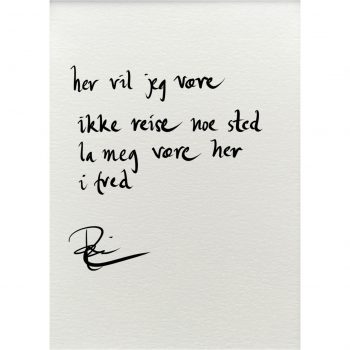 her vil jeg være
ikke reise noe sted
la meg være her
i fred